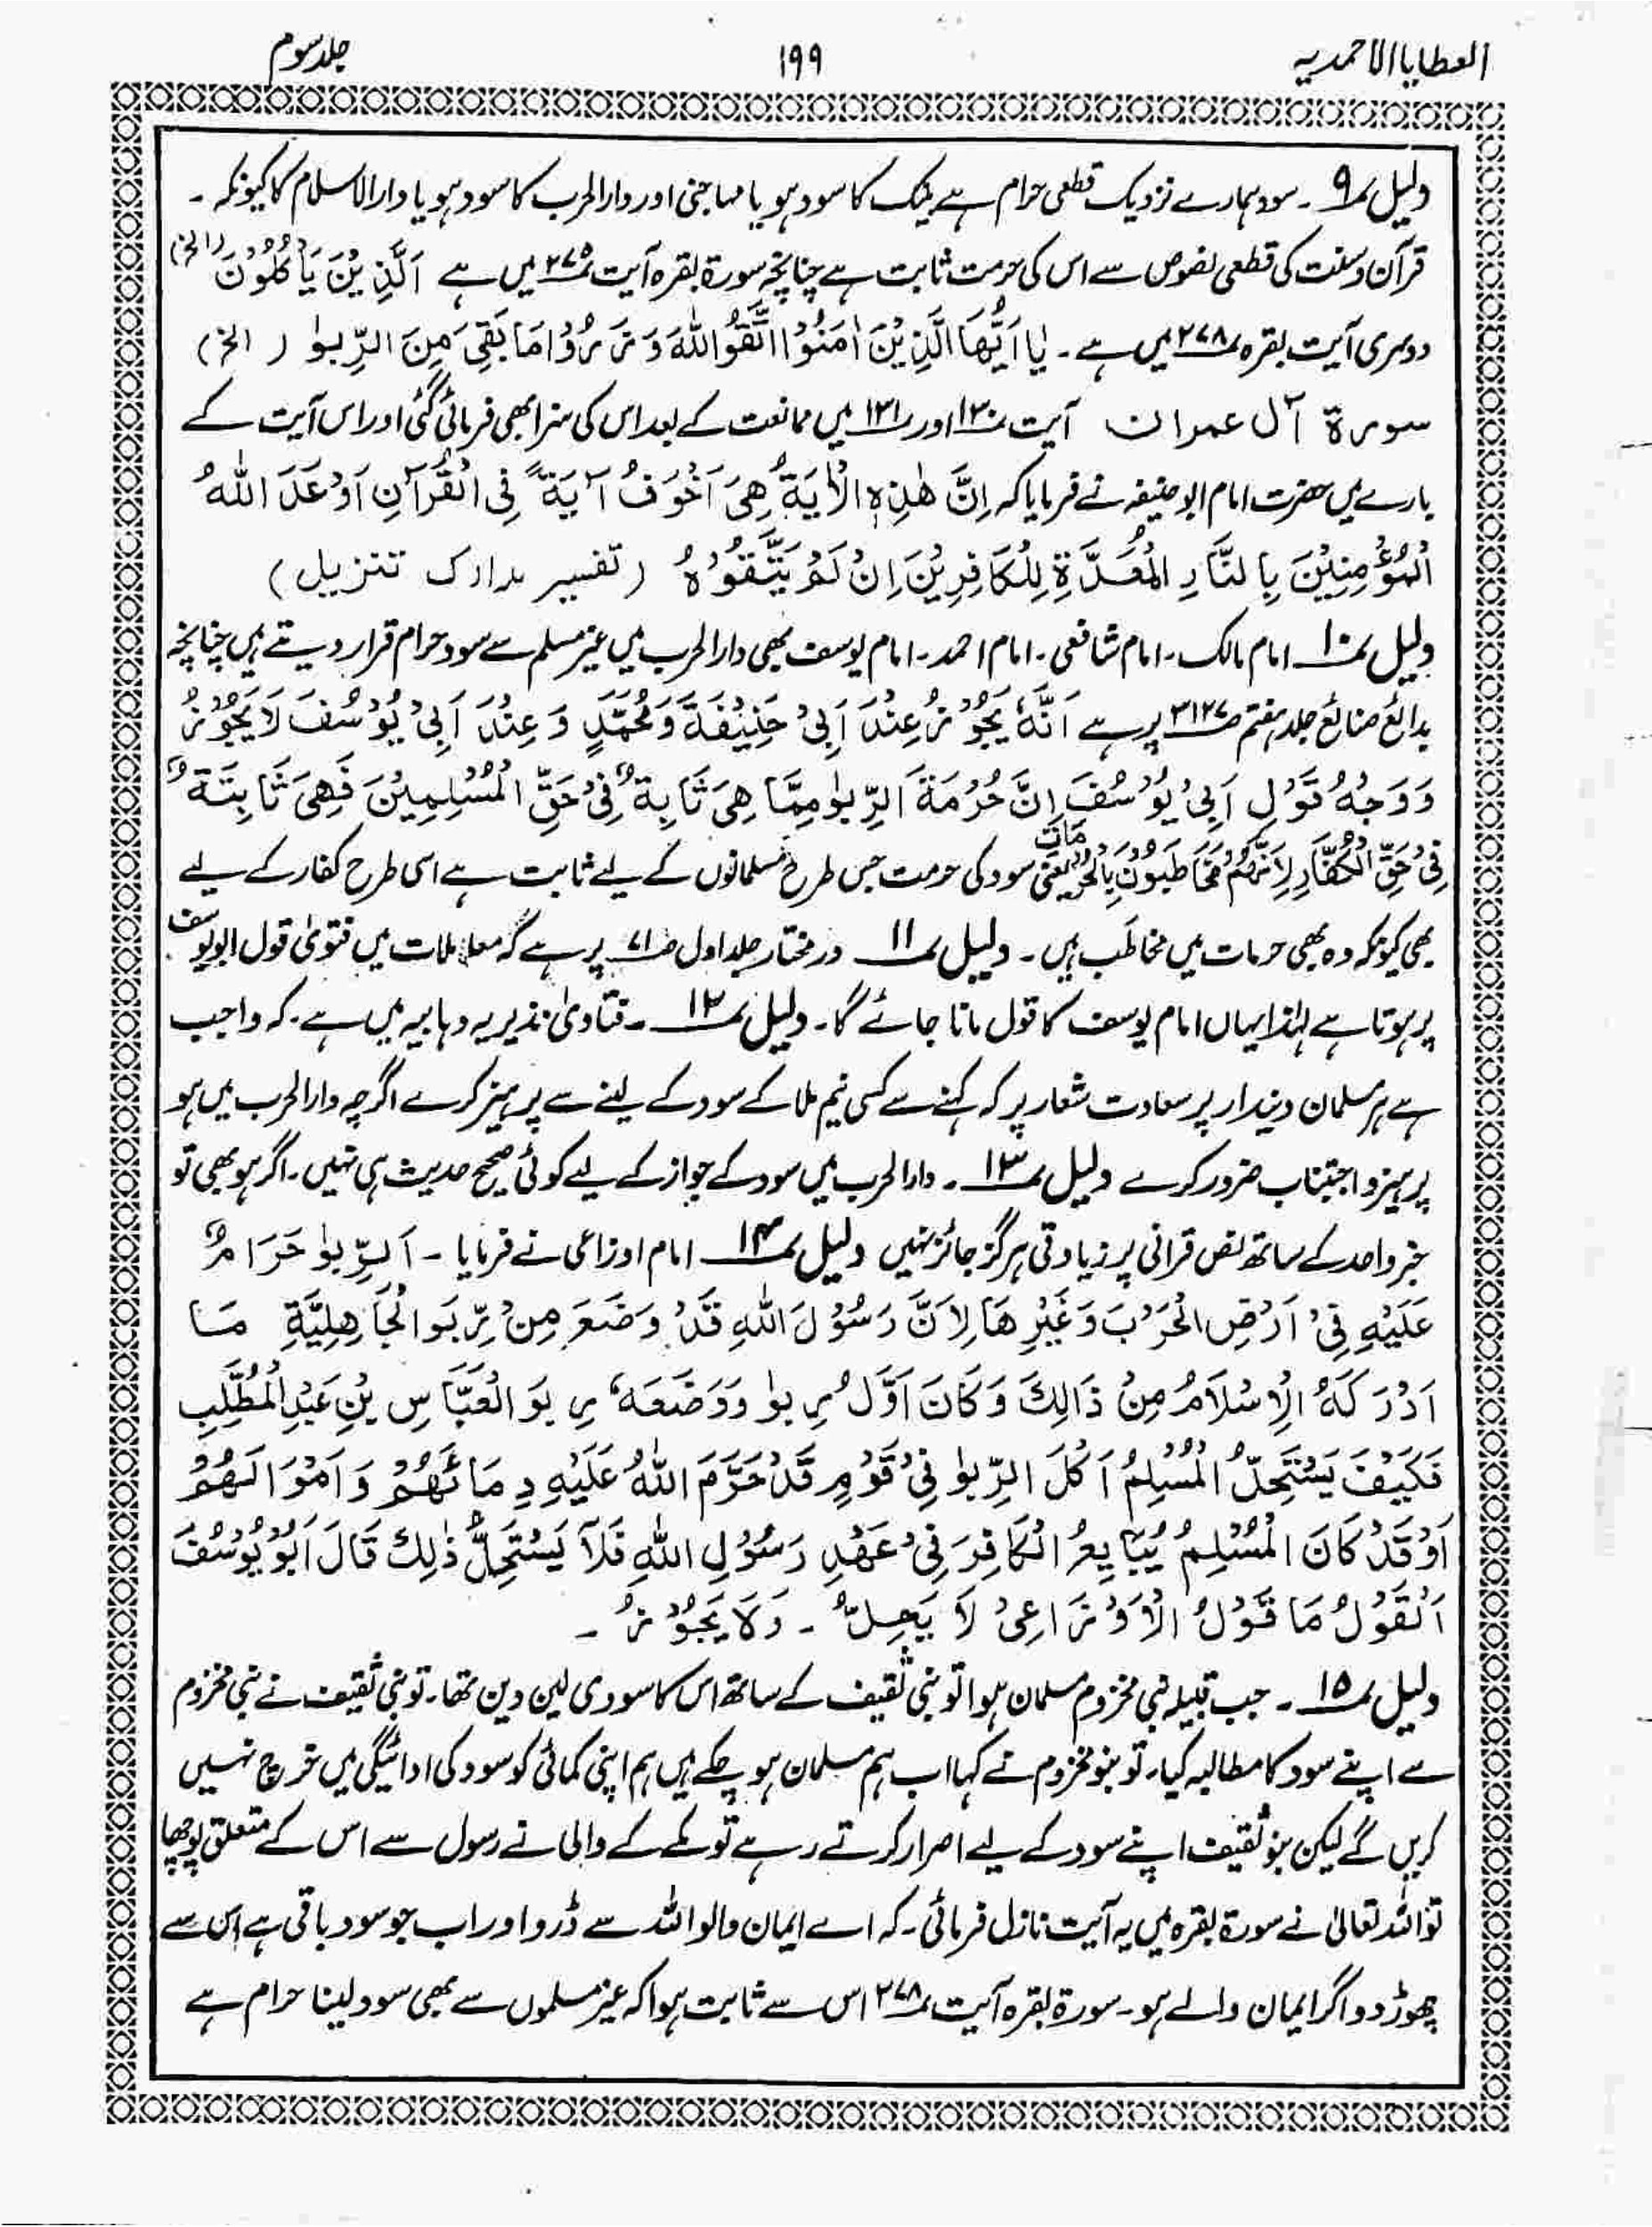 العطایا الاحمدیہ ۱۹۹ جلد سوم
دلیل نمبر ۹ ۔ سود ہمارے نزدیک قطعی حرام ہے بینک کا سود ہو یا مہاجنی اور دار الحرب کا سود ہو یا دار الاسلام کا کیونکہ ۔
قرآن و سنت کی قطعی نصوص سے اس کی حرمت ثابت ہے چنانچہ سورۃ بقرہ آیت نمبر ۲۷۵ میں ہے اَلَّذِیْنَ یَأْکُلُوْنَ (الخ)
دوسری آیت بقرہ نمبر ۲۷۸ میں ہے ۔ یٰا اَیُّھَا الَّذِیْنَ اٰمَنُوْا اتَّقُوا اللّٰہَ وَ ذَرُوْا مَا بَقِیَ مِنَ الرِّبٰوا ( الخ )
سورۃ آل عمران آیت نمبر ۱۳۰ اور نمبر ۱۳۱ میں ممانعت کے بعد اس کی سزا بھی فرمائی گئی اور اس آیت کے
بارے میں حضرت امام ابو حنیفہ نے فرمایا کہ اِنَّ ھٰذِہِ الْاٰیَۃَ ھِیَ اَخْوَفُ آیَۃً فِی الْقُرْآنِ اَوْعَدَ اللّٰہُ
الْمُؤْمِنِیْنَ بِالنَّارِ الْمُعَدَّۃِ لِلْکَافِرِیْنَ اِنْ لَمْ یَتَّقُوْہُ ( تفسیر مدارک تنزیل )
دلیل نمبر ۱۰ امام مالک ۔ امام شافعی ۔ امام احمد ۔ امام یوسف بھی دار الحرب میں غیر مسلم سے سود حرام قرار دیتے ہیں چنانچہ
بدائع صنائع جلد ہفتم ص ۳۱۲۷ پر ہے اَنَّہٗ یَجُوْزُ عِنْدَ اَبِیْ حَنِیْفَۃَ وَ مُحَمَّدٍ وَ عِنْدَ اَبِیْ یُوْسُفَ لَا یَجُوْزُ
وَ وَجْہُ قَوْلِ اَبِیْ یُوْسُفَ اِنَّ حُرْمَۃَ الرِّبٰوا مِمَّا ھِیَ ثَابِۃٌ فِیْ حَقِّ الْمُسْلِمِیْنَ فَھِیَ ثَابِتَۃٌ
فِیْ حَقِّ الْکُفَّارِ لِاَنَّھُمْ مُخَاطَبُوْنَ بِالْحُرُمَاتِ یعنی سود کی حرمت جس طرح مسلمانوں کے لیے ثابت ہے اسی طرح کفار کے لیے
بھی کیونکہ وہ بھی حرمات میں مخاطَب ہیں ۔ دلیل نمبر ۱۱ در مختار جلد اول ص ۷۱ پر ہے کہ معاملات میں فتویٰ قول ابو یوسف
پر ہوتا ہے لہٰذا یہاں امام یوسف کا قول مانا جائے گا ۔ دلیل نمبر ۱۲ ۔ فتاویٰ نذیریہ وہابیہ میں ہے ۔ کہ واجب
ہے ہر مسلمان دیندار پر سعادت شعار پر کہ کہنے سے کسی نیم ملا کے سود کے لینے سے پرہیز کرے اگرچہ دار الحرب میں ہو
پرہیز و اجتناب ضرور کرے دلیل نمبر ۱۳ ۔ دار الحرب میں سود کے جواز کے لیے کوئی صحیح حدیث ہی نہیں ۔ اگر ہو بھی تو
خبر واحد کے ساتھ نص قرانی پر زیادتی ہرگز جائز نہیں دلیل نمبر ۱۴ امام اوزاعی نے فرمایا ۔ اَلرِّبٰوا حَرَامٌ
عَلَیْہِ فِیْ اَرْضِ الْحَرْبَ وَ غَیْرِھَا لِاَنَّ رَسُوْلَ اللّٰہِ قَدْ وَضَعَ مِنْ رِّبَوا الْجَاھِلِیَّۃِ مَا
اَدْرَکَہُ الْاِسْلَامُ مِنْ ذَالِکَ وَ کَانَ اَوَّلُ رِبٰوا وَ وَضَعَہٗ رِبَوا الْعَبَّاسِ بْنِ عَبْدِ الْمُطَّلِبِ
فَکَیْفَ یَسْتَحِلُّ الْمُسْلِمُ اَکْلَ الرِّبٰوا فِیْ قَوْمٍ قَدْ حَرَّمَ اللّٰہُ عَلَیْہِ دِمَائَھُمْ وَ اَمْوَالَھُمْ
اَوْ قَدْ کَانَ الْمُسْلِمُ یُبَایِعُ الْکَافِرَ فِیْ عَھْدِ رَسُوْلِ اللّٰہِ فَلَآ یَسْتَحِلُّ ذٰلِکَ قَالَ اَبُوْ یُوْسُفَ
اَلْقَوْلُ مَا قَوْلُ الْاَوْزَاعِیْ لَا یَحِلُّ ۔ وَلَا یَجُوْزُ ۔
دلیل نمبر ۱۵ ۔ جب قبیلہ بنی مخزوم مسلمان ہوا تو بنی ثقیف کے ساتھ اس کا سودی لین دین تھا ۔ تو بنی ثقیف نے بنی مخزوم
سے اپنے سود کا مطالبہ کیا ۔ تو بنو مخزوم نے کہا اب ہم مسلمان ہو چکے ہیں ہم اپنی کمائی کو سود کی ادائیگی میں خرچ نہیں
کریں گے لیکن بنو ثقیف اپنے سود کے لیے اصرار کرتے رہے تو مکے کے والی نے رسول سے اس کے متعلق پوچھا
تو اللہ تعالیٰ نے سورۃ بقرہ میں یہ آیت نازل فرمائی ۔ کہ اے ایمان والو اللہ سے ڈرو اور اب جو سود باقی ہے اس سے
چھوڑ دو اگر ایمان والے ہو ۔ سورۃ بقرہ آیت نمبر ۲۷۸ اس سے ثابت ہوا کہ غیر مسلموں سے بھی سود لینا حرام ہے